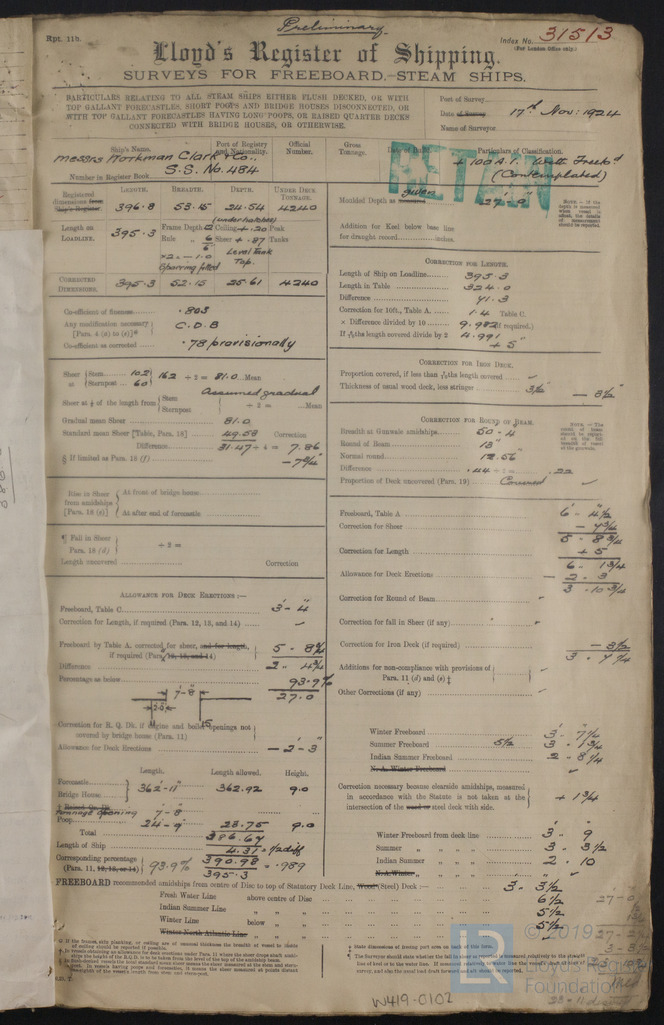 Rpt. 11b.
Preliminary
Index No. 31513
(For London Office only.)
Lloyd's Register of Shipping.
SURVEYS FOR FREEBOARD.—STEAM SHIPS.
PARTICULARS RELATING TO ALL STEAM SHIPS EITHER FLUSH DECKED, OR WITH
TOP GALLANT FORECASTLES, SHORT POOPS AND BRIDGE HOUSES DISCONNECTED, OR
WITH TOP GALLANT FORECASTLES HAVING LONG POOPS, OR RAISED QUARTER DECKS
CONNECTED WITH BRIDGE HOUSES, OR OTHERWISE.
Port of Survey
Date of Survey 17th Nov: 1924
Name of Surveyor
Ship's Name.
Port of Registry and Nationality.
Official Number.
Gross Tonnage.
Date of Build.
Particulars of Classification.
Messrs Workman Clark & Co.,
S.S. No. 484
Number in Register Book
RETAIN
+ 100 A.1. With Freeb'd
(Contemplated)
LENGTH. BREADTH. DEPTH. UNDER DECK TONNAGE.
Registered dimensions from Ship's Register
396.8 53.15 24.54 4240
(under hatches)
Length on LOADLINE. 395.3
Frame Depth
Rule 6
x2 = - 1.0
Sparring fitted
Ceiling + .20
Sheer + .87
Level Tank Top.
Peak Tanks
CORRECTED DIMENSIONS. 395.3 52.15 25.61 4240
Moulded Depth as given 27' . 0"
Addition for Keel below base line
for draught record inches.
NOTE.—If the depth is measured when vessel is afloat, the details of measurement should be reported.
Co-efficient of fineness .803
Any modification necessary
[Para. 4 (a) to (e)]* C.D.B
Co-efficient as corrected .78 provisionally
CORRECTION FOR LENGTH.
Length of Ship on Loadline 395.3
Length in Table 324.0
Difference 71.3
Correction for 10ft., Table A. 1.4 Table C.
× Difference divided by 10 9.982 (if required.)
If 6/10ths length covered divide by 2 4.991
+ 5"
Sheer at Stem 102
Sternpost 60
162 ÷ 2 = 81.0 Mean
Assumed gradual
Sheer at 1/8 of the length from Stem
Sternpost
÷ 2 = Mean
Gradual mean Sheer 81.0
Standard mean Sheer [Table, Para. 18] 49.53 Correction
Difference 31.47 ÷ 4 = 7.86
§ If limited as Para. 18 (f) - 7¾"
CORRECTION FOR IRON DECK.
Proportion covered, if less than 7/10ths length covered
Thickness of usual wood deck, less stringer 3½ - 3½"
CORRECTION FOR ROUND OF BEAM.
Breadth at Gunwale amidships 50.4
Round of Beam 13"
Normal round 12.56"
Difference .44 ÷ 2 .22
Proportion of Deck uncovered (Para. 19) Covered
Rise in Sheer from amidships [Para. 18 (e)]
At front of bridge house
At after end of forecastle
¶ Fall in Sheer Para. 18 (d)
÷ 2 =
Length uncovered
Correction
Freeboard, Table A 6' - 4½
Correction for Sheer - 7¾
5 - 8¾
Correction for Length + 5
6 - 1¾
Allowance for Deck Erections - 2 - 3
3 - 10¾
Correction for Round of Beam
Correction for fall in Sheer (if any)
Correction for Iron Deck (if required) - 3½
3 . 7¼
Additions for non-compliance with provisions of
Para. 11 (d) and (e) ‡
Other Corrections (if any)
ALLOWANCE FOR DECK ERECTIONS :—
Freeboard, Table C 3' - 4
Correction for Length, if required (Para. 12, 13, and 14)
Freeboard by Table A. corrected for sheer, and for length,
if required (Para. 12, 13, and 14) 5 - 8¾
Difference 2 . 4¾
Percentage as below 93.9%
27.0
7'-8"
Correction for R. Q. Dk. if engine and boiler openings not
covered by bridge house (Para. 11)
Allowance for Deck Erections - 2' - 3"
Winter Freeboard 3' - 7¼
Summer Freeboard 5½ 3 - 1¾
Indian Summer Freeboard 2 . 8¼
N. A. Winter Freeboard
Correction necessary because clearside amidships, measured
in accordance with the Statute is not taken at the
intersection of the wood or steel deck with side. + 1¾
Length. Length allowed. Height.
Forecastle
Bridge House 362'-11" 362.92 9.0
Raised Qr. Dk.
Tonnage Opening 7-8
Poop 24-9 23.75 9.0
Total 386.67
Length of Ship 4.31 = ½ diff
Corresponding percentage 390.98 = .989
(Para. 11, 12, 13, or 14) 93.9% 395.3
Winter Freeboard from deck line 3 . 9
Summer " " " 3 . 3½
Indian Summer " " " 2 . 10
N. A. Winter " " "
FREEBOARD recommended amidships from centre of Disc to top of Statutory Deck Line, Wood (Steel) Deck :— 3 . 3½
Fresh Water Line above centre of Disc 6½
Indian Summer Line " " 5½
Winter Line below " " 5½
Winter North Atlantic Line " "
† State dimensions of freeing port area on back of this form.
© 2019
LR
Lloyd's Register
Foundation
W419-0102